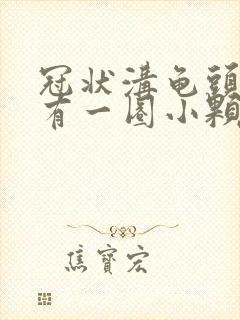 冠状溝龟頭
有一圈小顆
焦寶宏